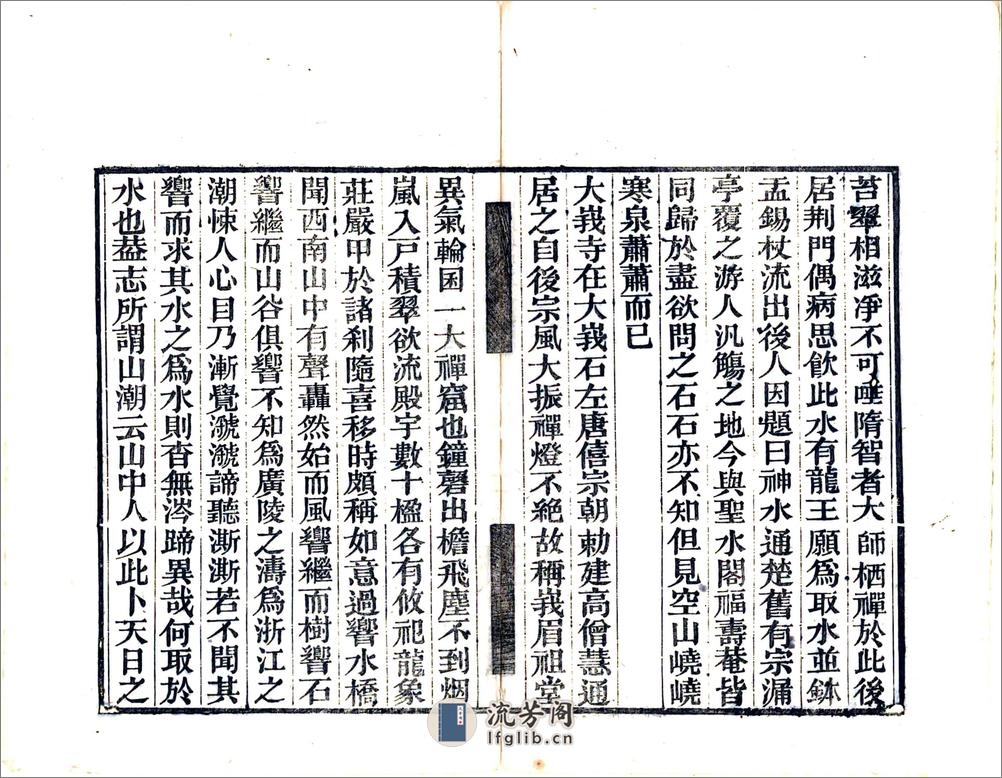 苔翠相滋凈不可唾隋智者大師栖禪於此後
居荆門偶病思飲此水有龍王願為取水並鉢
盂錫杖流出後人因題曰神水通楚舊有宗漏
亭覆之游人汎觴之地今與聖水閣福壽菴皆
同歸於盡欲問之石石亦不知但見空山嶢嶢
寒泉蕭蕭而已
大峩寺在大峩石左唐僖宗朝勅建高僧慧通
居之自後宗風大振禪燈不絕故稱峩眉祖堂
異氣輪囷一大禪窟也鐘磬出檐飛塵不到烟
嵐入戸積翠欲流殿宇數十楹各有攸祀龍象
莊嚴甲於諸刹隨喜移時頗稱如意過響水橋
聞西南山中有聲轟然始而風響繼而樹響石
響繼而山谷俱響不知為廣陵之濤為浙江之
潮悚人心目乃漸覺漉漉諦聽澌澌若不聞其
響而求其水之為水則杳無涔蹄異哉何取於
水也葢志所謂山潮云山中人以此卜天日之
流芳阁
lfglib.cn